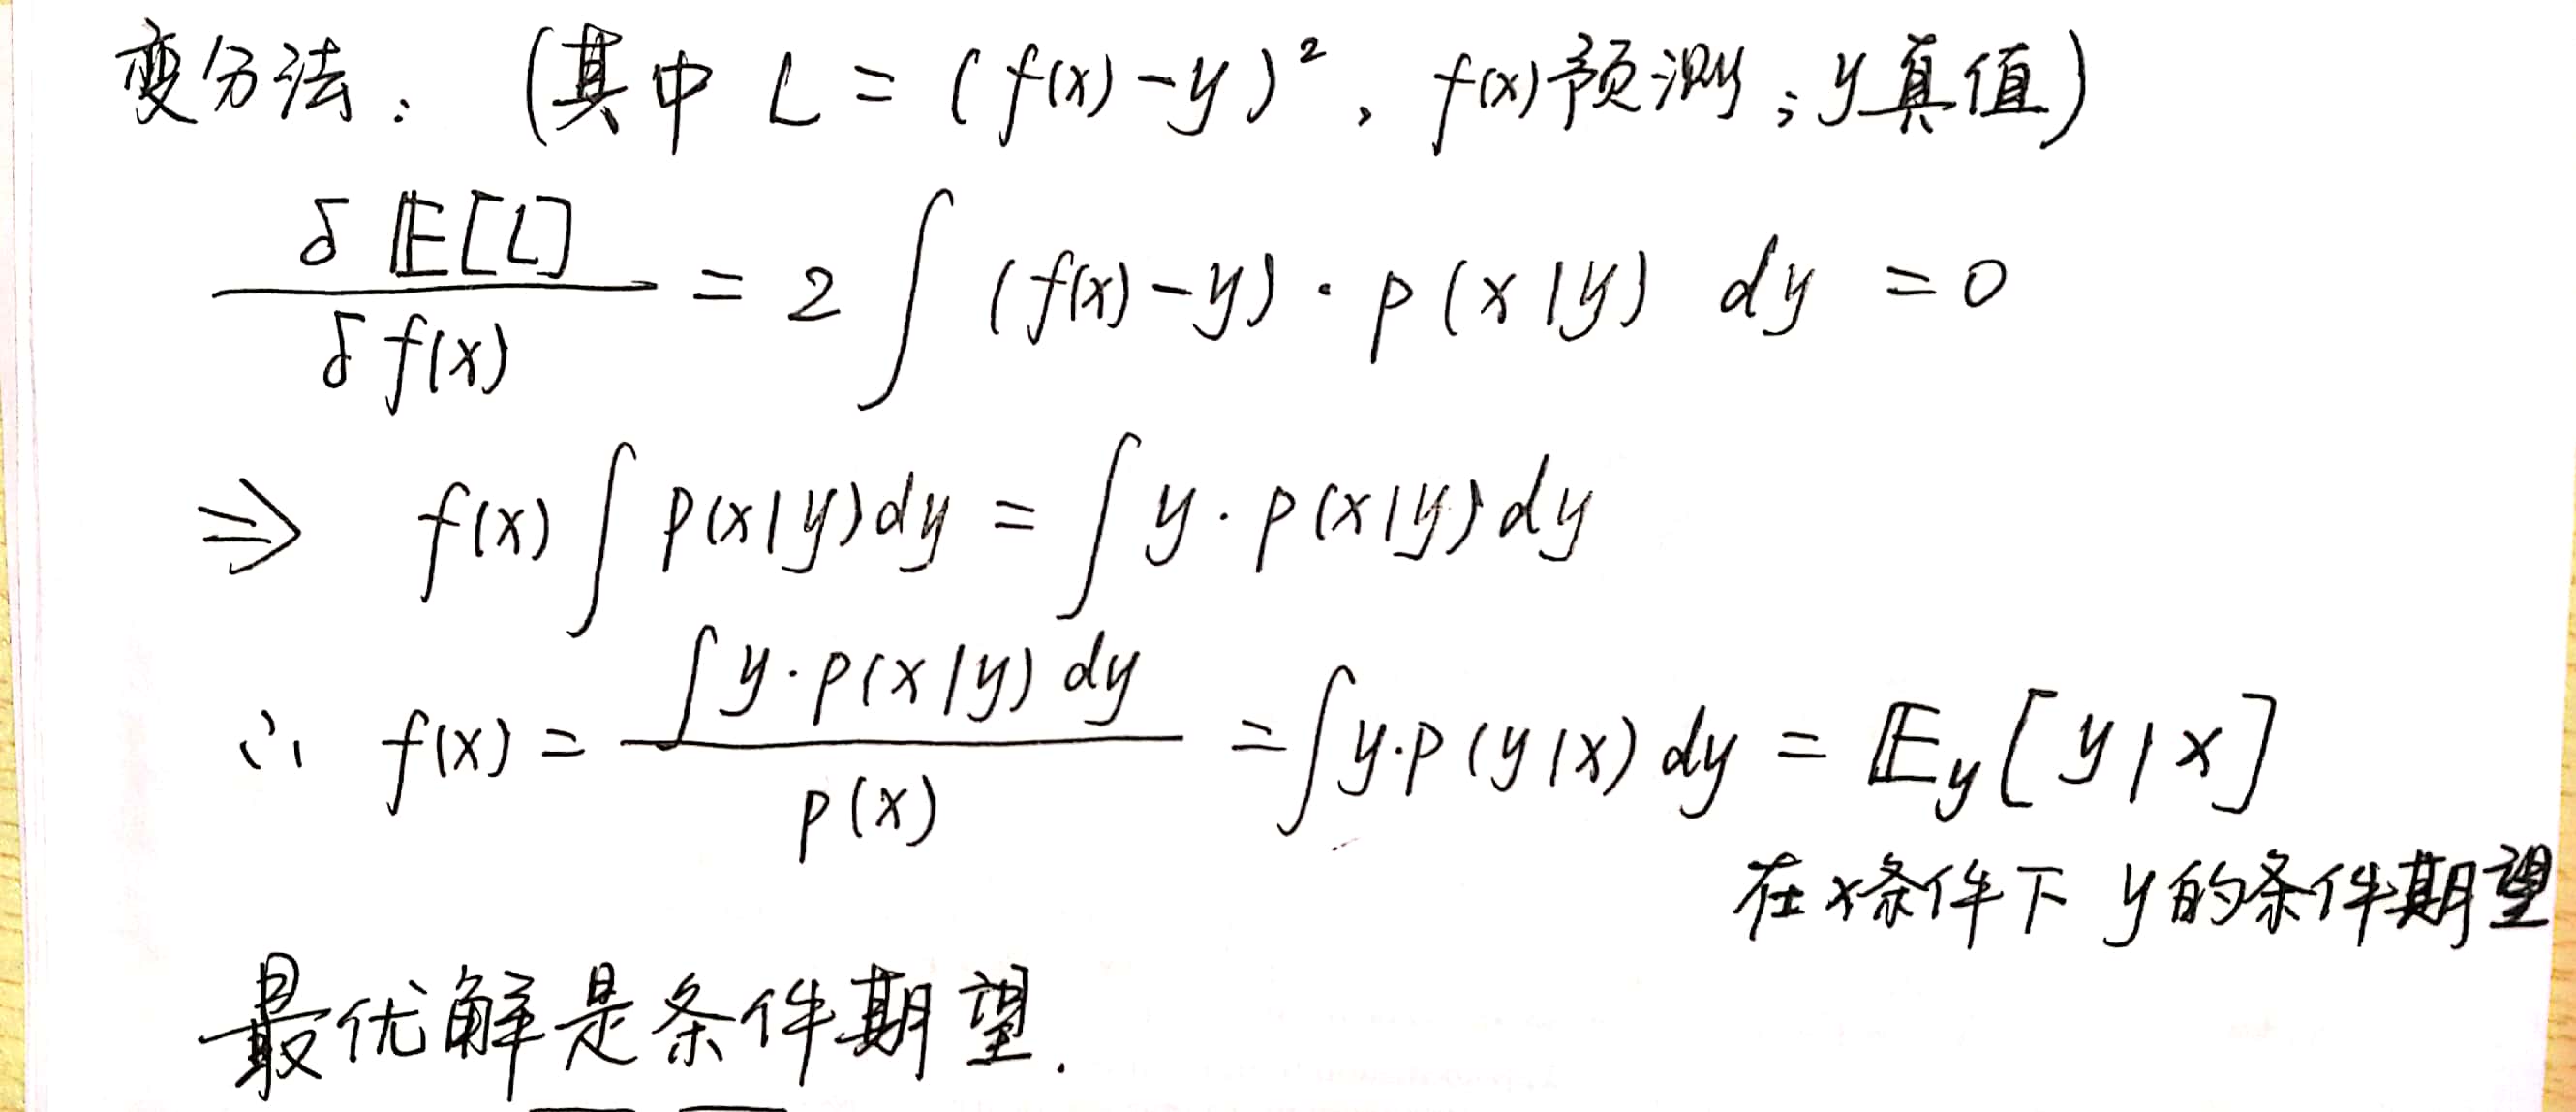 变分法: (其中 L = (f(x)-y)², f(x)预测; y真值)
δ𝔼[L] / δf(x) = 2∫(f(x)-y)·p(x|y) dy = 0
⇒ f(x)∫p(x|y)dy = ∫y·p(x|y)dy
∴ f(x) = ∫y·p(x|y)dy / p(x) = ∫y·p(y|x)dy = 𝔼_y[y|x]
在x条件下 y的条件期望
最优解是条件期望.